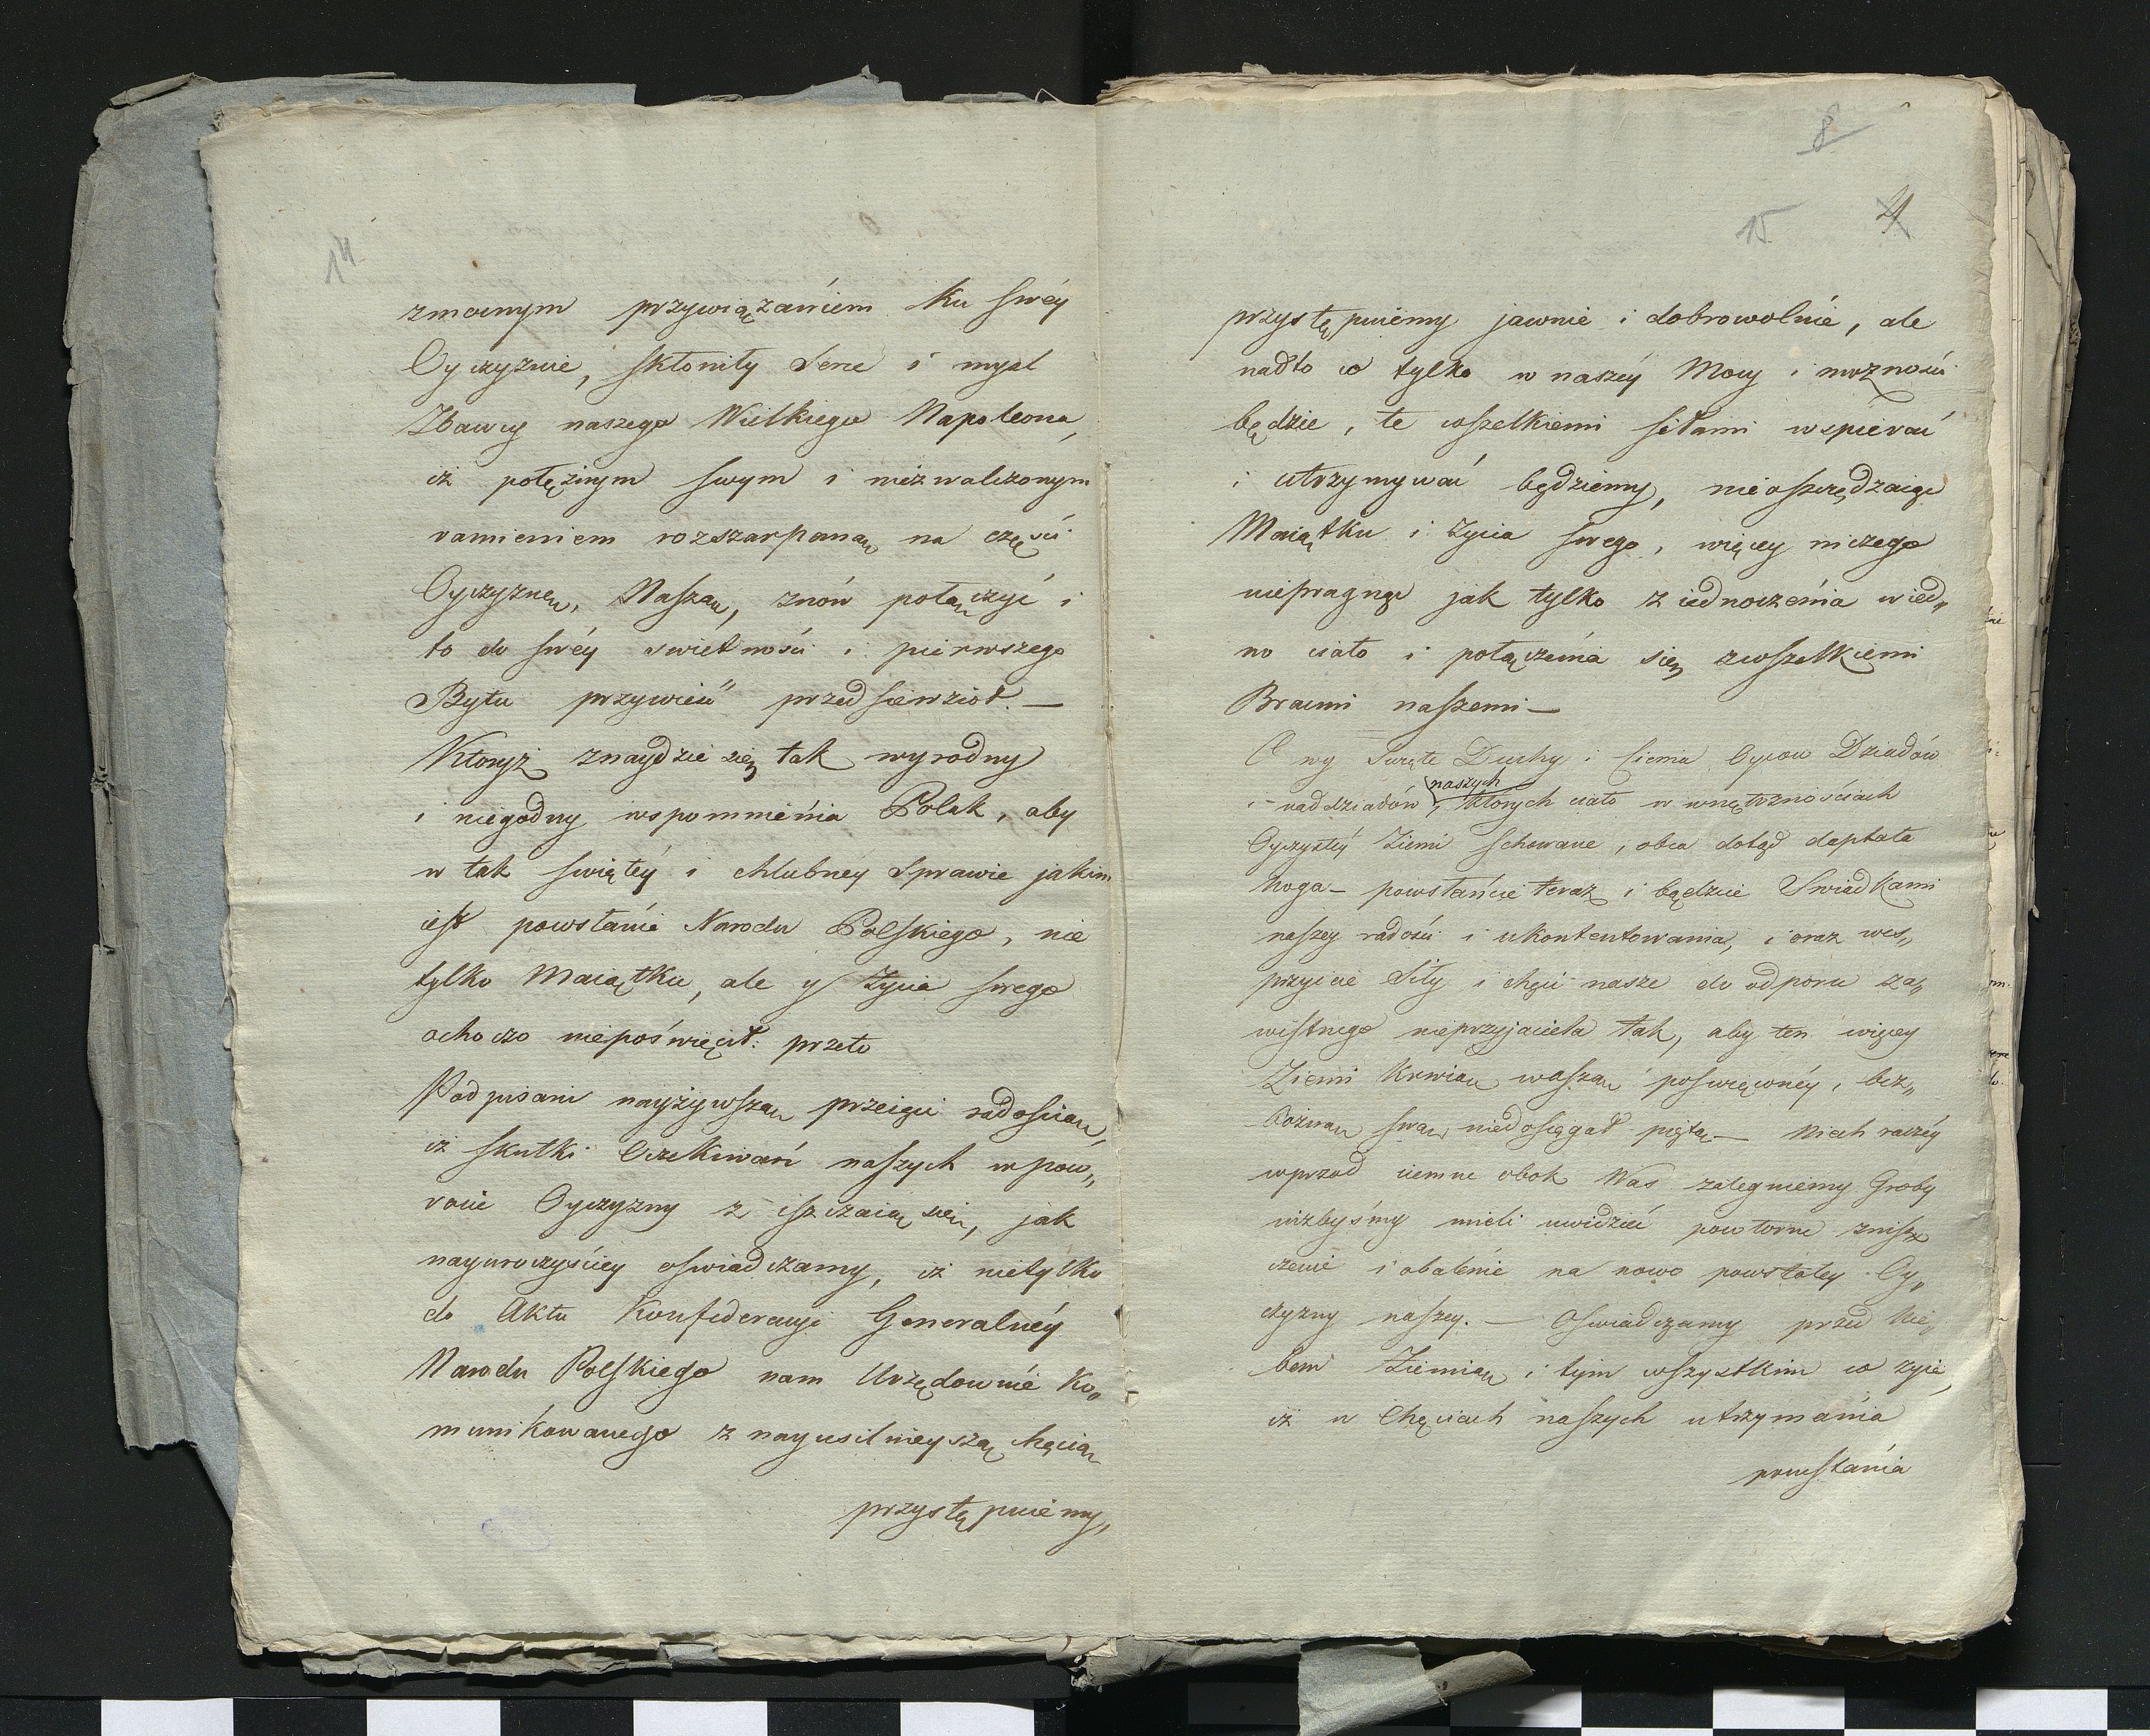 14
zmocnym przywiązaniem ku swéy
Oyczyznie, skłoniły Serce i mysl
Zbawcy naszego Wielkiego Napoleona,
iż potężnym swym i niezwalczonym
ramieniem rozszarpaną na części
Oyczyznę, Naszą, znów połączyć i
to do swéy swietności i pierwszego
Bytu przywieść przedsiewziął. —
Któryż znaydzie się tak wyrodny
i niegodny wspomnienia Polak, aby
w tak swiętéy i chlubney Sprawie jakim
iest powstanie Narodu Polskiego, nie
tylko Maiątku, ale y Życia swego
ochoczo niepoświęcił: przeto
Podpisani nayżywszą przeięci radością,
iż skutki Oczekiwań naszych w pow„
rocie Oyczyzny ziszczaią się, jak
nayuroczyściey oswiadczamy, iż nietylko
do Aktu Konfederacyi Generalnéy
Narodu Polskiego nam Urzędownie ko„
munikowanego z nayusilnieyszą chęcią
przystępuiemy,
8
15 4
przystępuiemy jawnie i dobrowolnie, ale
nadto co tylko w naszéy Mocy i możności
będzie, te wszelkiemi siłami wspierać
i utrzymywać będziemy, nieoszczędzaiąc
Maiątku i Życia swego, więcey niczego
niepragnąc jak tylko ziednoczenia wied„
no ciało i połączenia się zwszelkiemi
Bracmi naszemi —
O wy Swięte Duchy i Cienia Oycow Dziadów
naszych
i naddziadów, których ciało w wnętrznościach
Oyczystéy Ziemi schowane, obca dotąd deptała
noga — powstańcie teraz i bądzcie Swiadkami
naszey radości i ukontentowania, i oraz wes„
przyicie Siły i chęci nasze do odporu za„
wistnego nieprzyjaciela tak, aby ten więcey
Ziemi Krwią waszą poswięconéy, bez„
bożną swą niedosięgał piętą — Niech raczéy
wprzod ciemne obok Was zalegniemy Groby
niżbyśmy mieli uwidzieć powtorne znisz„
czenie i obalenie na nowo powstałey Oy„
czyzny naszey. — Oswiadczamy przed Nie„
bem Ziemią i tym wszystkim co zyie,
iż w Chęciach naszych utrzymania
powstania